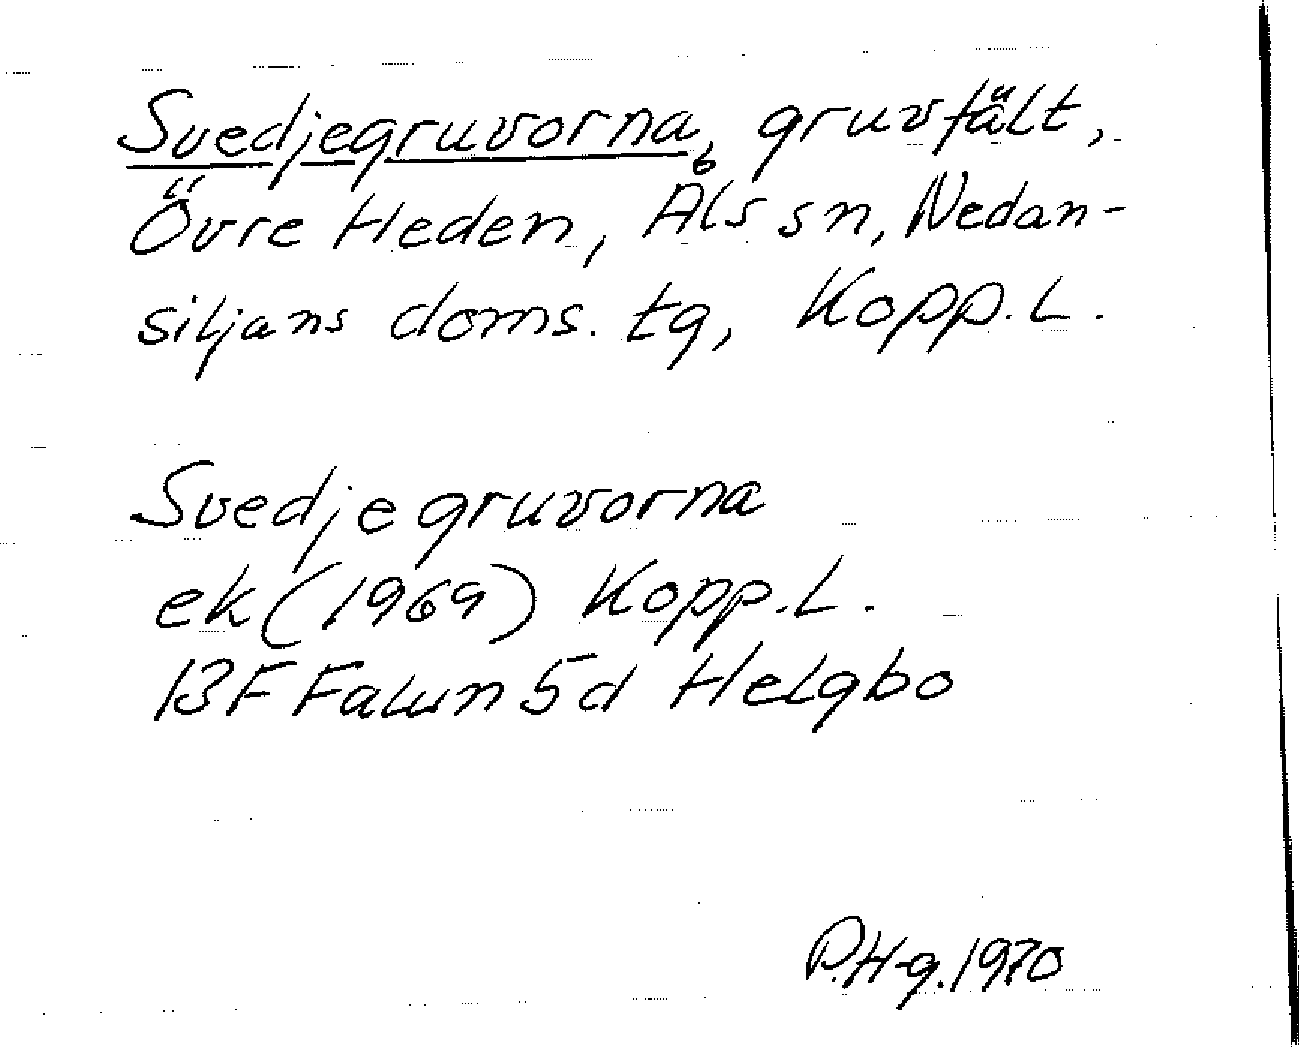 Svedjegruvorna, gruvfält,
Övre Heden, Åls sn, Nedan-
siljans doms. tg, Kopp. L.
Svedjegruvorna
ek (1969) Kopp. L.
13F Falun 5d Helgbo
P.H-g. 1970